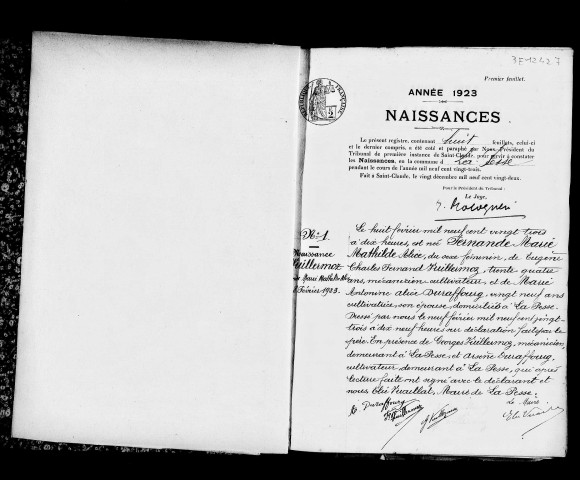 3E-12427
Premier feuillet.
ANNÉE 1923
NAISSANCES
Le présent registre, contenant huit feuillets, celui-ci
et le dernier compris, a été coté et paraphé par Nous, Président du
Tribunal de première instance de Saint-Claude, pour servir à constater
les Naissances, en la commune de La Pesse
pendant le cours de l'année mil neuf cent vingt-trois.
Fait à Saint-Claude, le vingt décembre mil neuf cent vingt-deux.
Pour le Président du Tribunal :
Le Juge,
N° 1
Naissance
Vuillermoz
Marie Mathilde
Février 1923.
Le huit février mil neuf cent vingt trois
à dix heures, est née Fernande Marie
Mathilde Alice, du sexe féminin, de Eugène
Charles Fernand Vuillermoz, trente quatre
ans, mécanicien cultivateur, et de Marie
Antonine Alice Duraffourg, vingt neuf ans
cultivatrice, son épouse, domiciliés à La Pesse.
Dressé par nous le neuf février mil neuf cent vingt-
trois à dix neuf heures sur déclaration faite par le
père. En présence de Georges Vuillermoz, mécanicien,
demeurant à La Pesse, et Arsène Duraffourg,
cultivateur demeurant à La Pesse, qui, après
lecture faite ont signé avec le déclarant et
nous Elie Maire de La Pesse.
Le Maire
Duraffourg
Vuillermoz
Vuillermoz
Elie